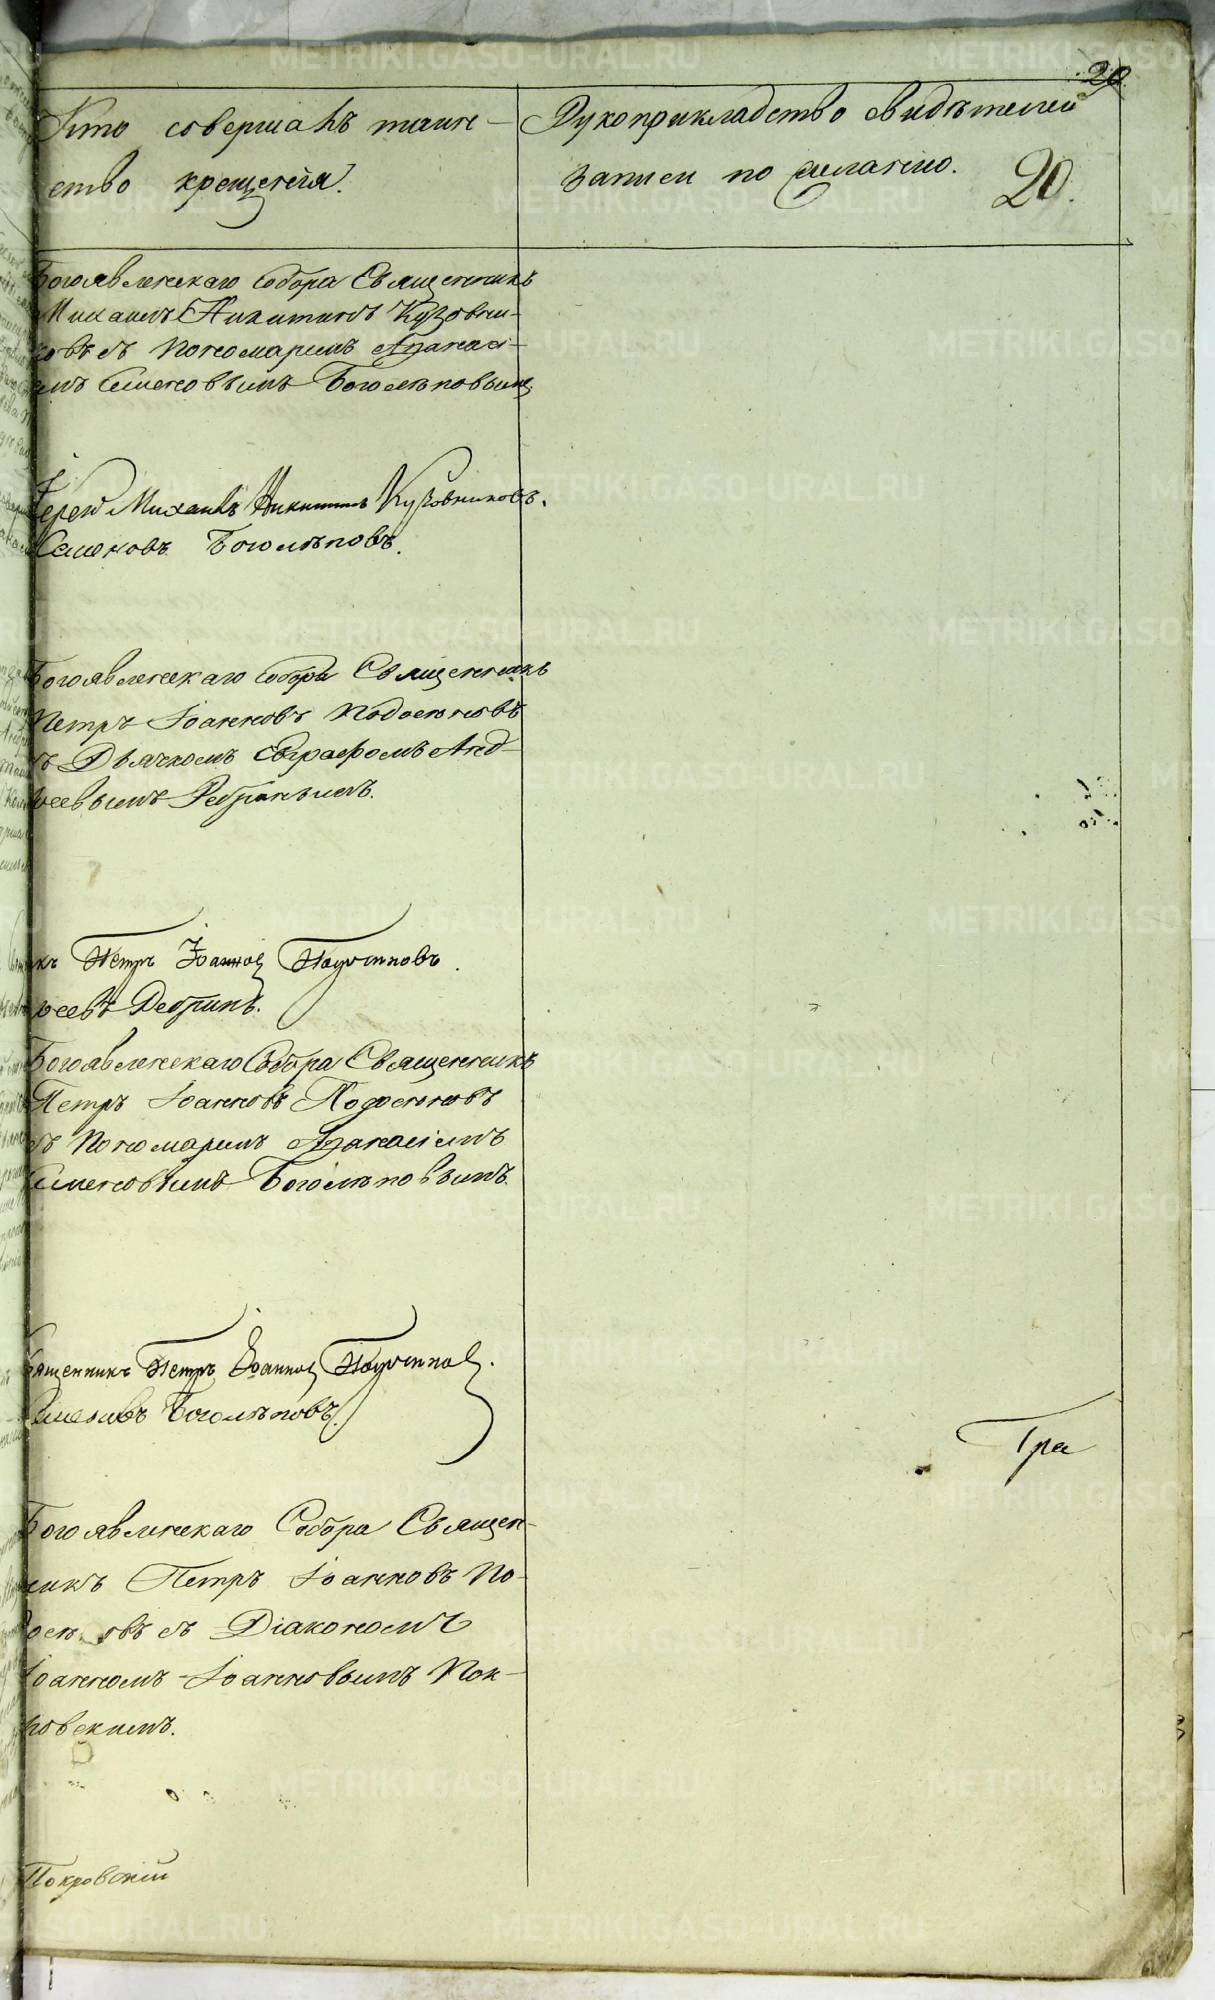 20
Кто совершалъ таин- Рукоприкладство свидѣтелей
ство крещенія. записи по желанію. 20.
Богоявленскаго Собора Священникъ
Михаилъ Никитинъ Кузовни-
ковъ съ Пономаремъ Аѳанасі-
емъ Семеновымъ Боголѣповымъ
Іерей Михаилъ Никитинъ Кузовниковъ.
Семеновъ Боголѣповъ.
Богоявленскаго Собора Священникъ
Петръ Іоанновъ Подосеновъ
съ Дьячкомъ Евграфомъ Анд-
реевымъ
Петръ Іоаннов
реевъ
Богоявленскаго Собора Священникъ
Петръ Іоанновъ Подосеновъ
съ Пономаремъ Аѳанасіемъ
Семеновымъ Боголѣповымъ.
Священникъ Петръ Іоаннов
Семеновъ Боголѣповъ.
Богоявленскаго Собора Священ-
никъ Петръ Іоанновъ По-
съ Діакономъ
Іоанномъ Іоанновымъ Пок-
ровскимъ.
Покровскій
Гра